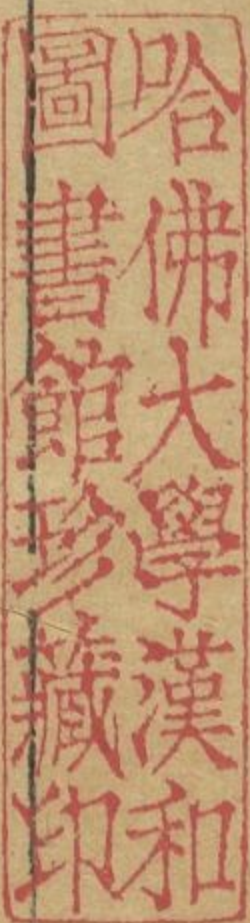 哈佛大學漢和
圖書館珍藏印